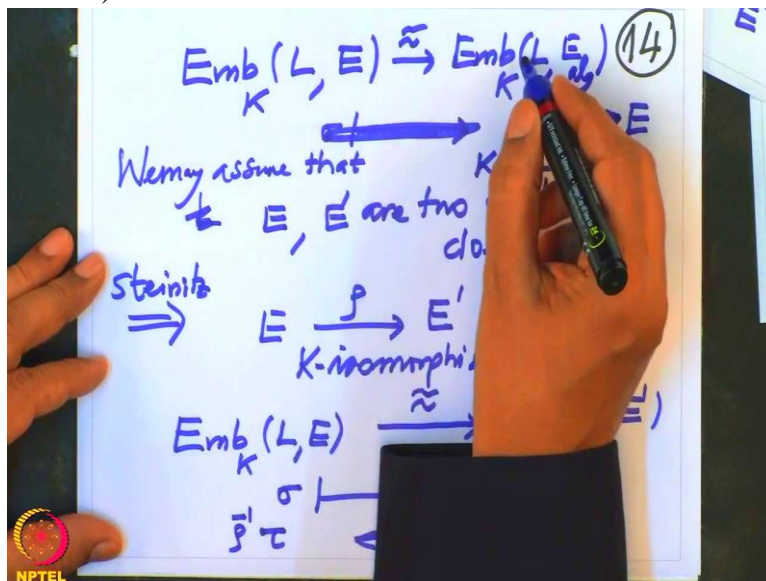 Emb_K (L, E) ≅→ Emb_K (L, E_alg) 14
K → E
We may assume that
E, E' are two
clo
Steinitz
⟹ E —ρ→ E'
K-isomorphi
Emb_K (L, E) ≅→ E')
σ ⟼
ρ⁻¹ τ ←
NPTEL